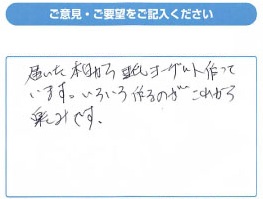 ご意見・ご要望をご記入ください
届いた本日から ヨーグルト作って
います。いろいろ作るのが これから
楽しみです。